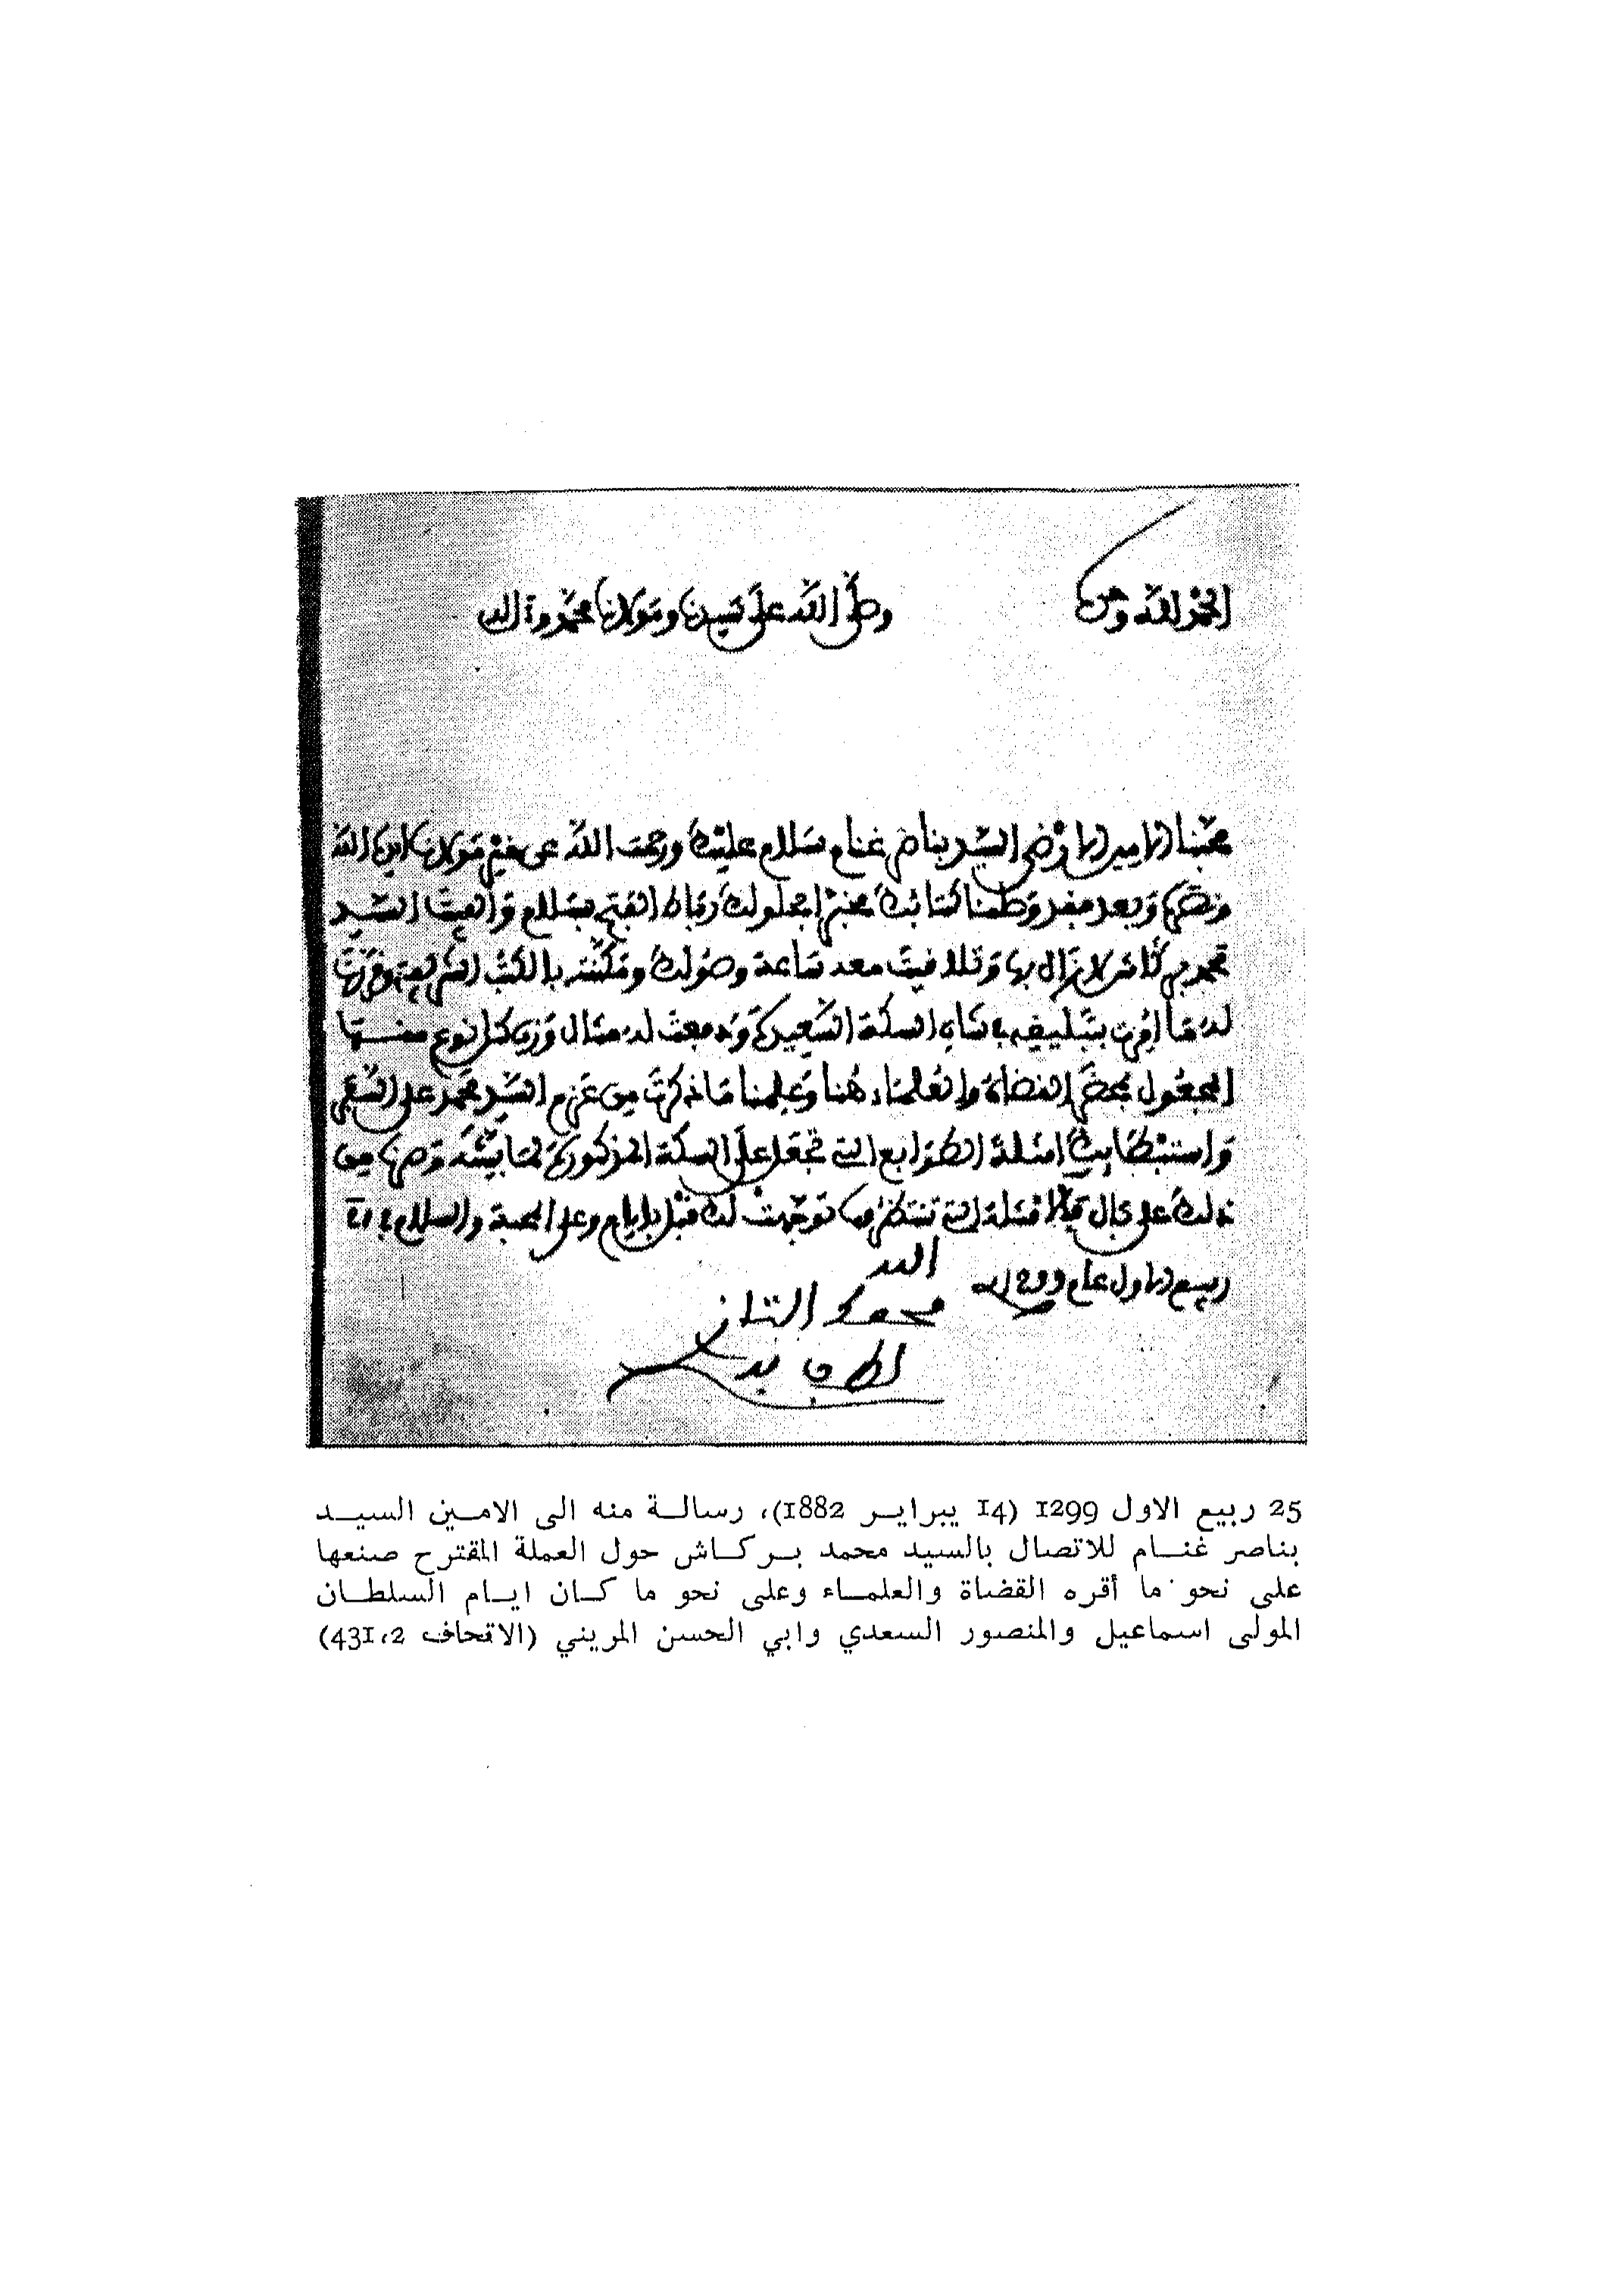 الحمد لله وحده
وصلى الله على سيدنا ومولانا محمد وءاله
محبنا الامين الارضى السيد بناصر غنام سلام عليك ورحمت الله عن خير مولانا ايده الله
ونصره وبعد فقد وصلنا كتابك مخبرا بحلولك رباط الفتح بسلام والفيت السيد
محمد بركاش لا زال بها وتلاقيت معه ساعة وصولك ومكنته بالكتب الشريفة وقررت
له ما امرت بتبليغه بشان السكة السعيدة وقد بعثت له مثال وزن كل نوع منها
المجعول بمحضر القضاة والعلماء هنا وعلمنا ما ذكرت من عزم السيد محمد على السفر
واستبطابك امثلة الطوابع التي تجعل على السكة المذكورة لما بينته وصرنا من
ذلك على بال فالامثلة التي تنتظرها توجهت لك قبل بايام وعلى المحبة والسلام
ربيع الاول عام 1299
الله
محمد التازي
25 ربيع الاول 1299 (14 يبراير 1882)، رسالة منه الى الامين السيد
بناصر غنام للاتصال بالسيد محمد بركاش حول العملة المقترح صنعها
على نحو ما أقره القضاة والعلماء وعلى نحو ما كان ايام السلطان
المولى اسماعيل والمنصور السعدي وابي الحسن المريني (الاتحاف 2،431)